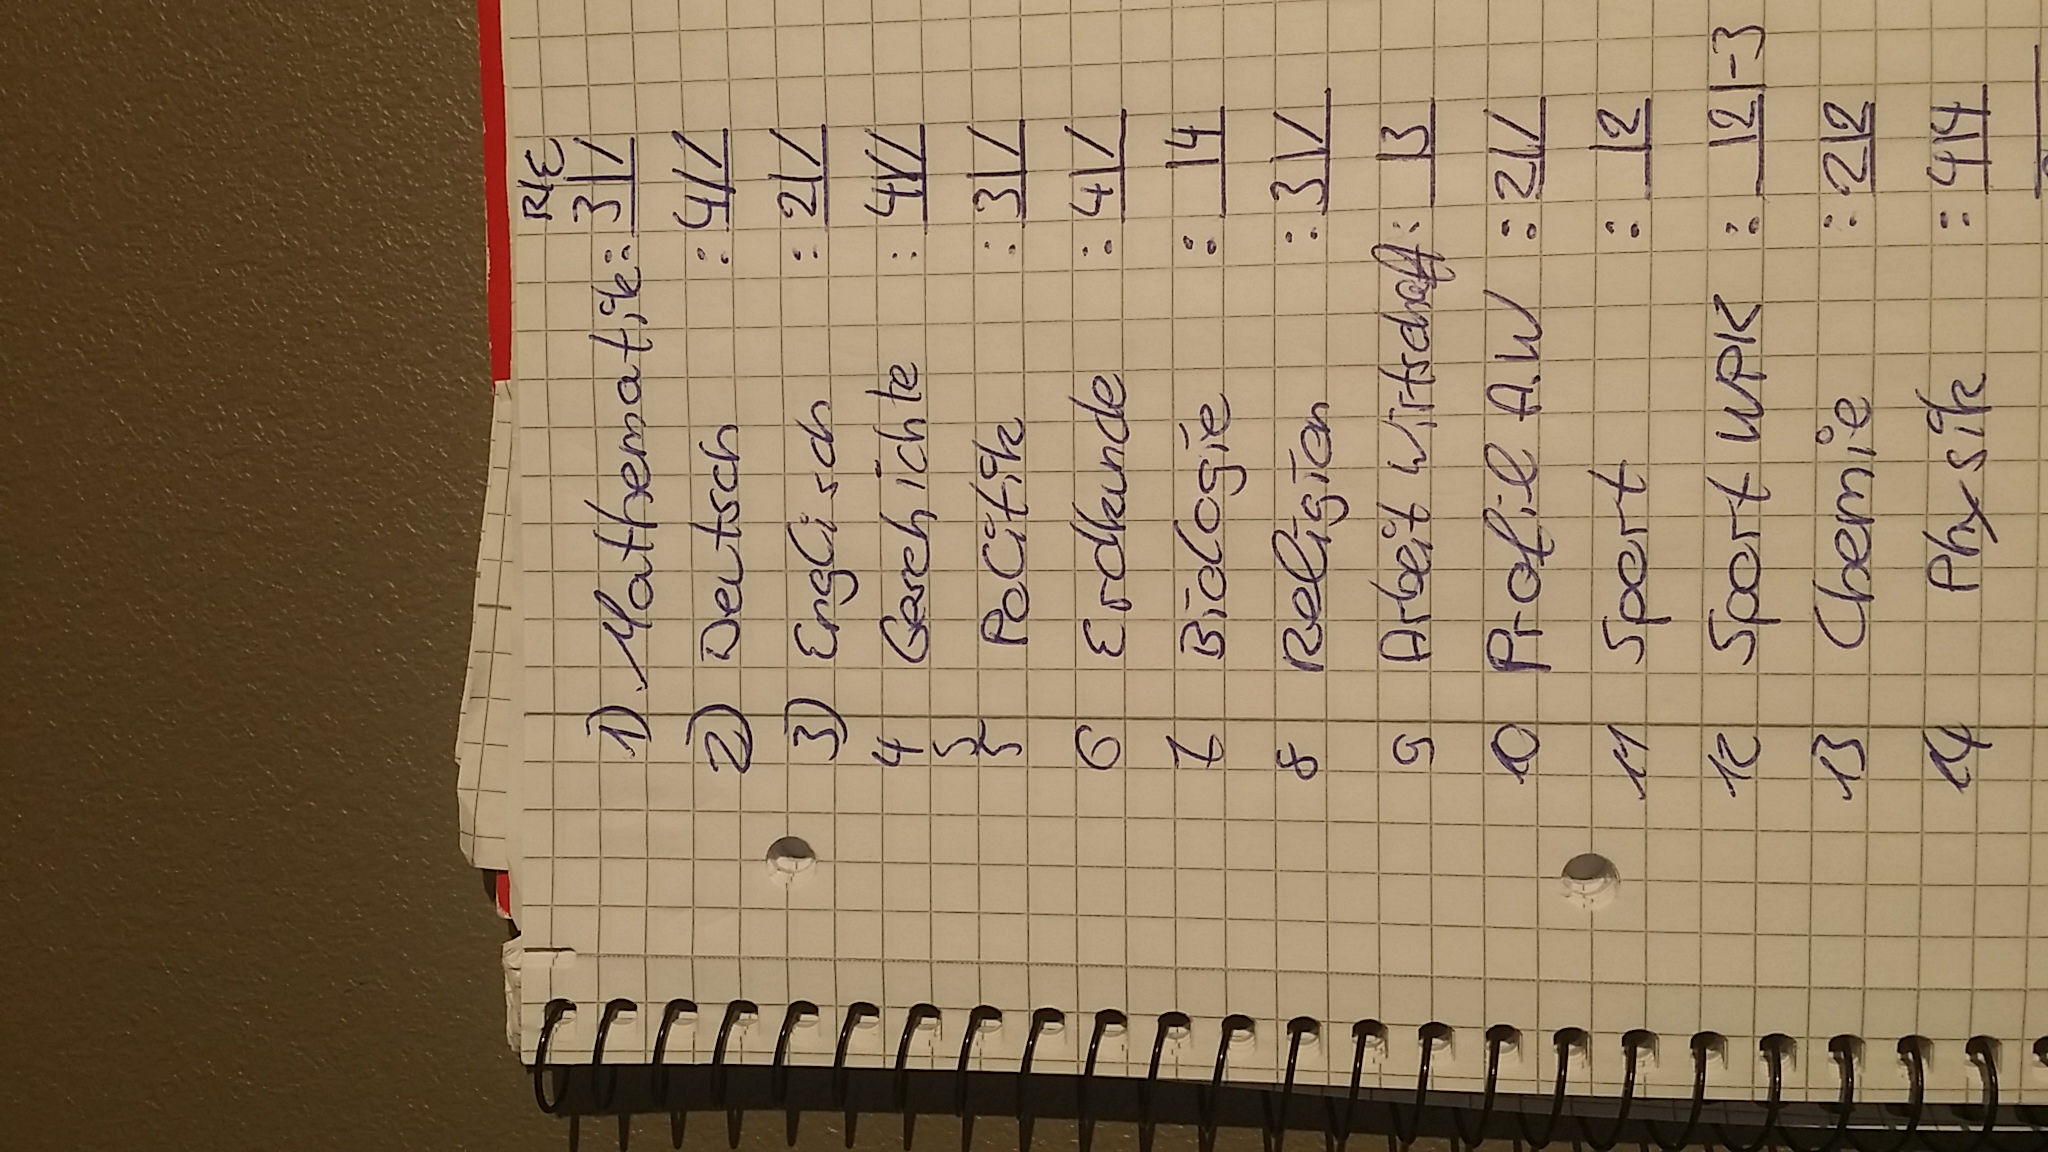 R/E
1) Mathematik: 3|/
2) Deutsch : 4|/
3) Englisch : 2|/
4 Geschichte : 4|/
5 Politik : 3|/
6 Erdkunde : 4|/
7 Biologie : |4
8 Religion : 3|/
9 Arbeit Wirtschaft: |3
10 Profil A.W : 2|/
11 Sport : |2
12 Sport WPK : |2|-3
13 Chemie : 2|2
14 Physik : 4|4